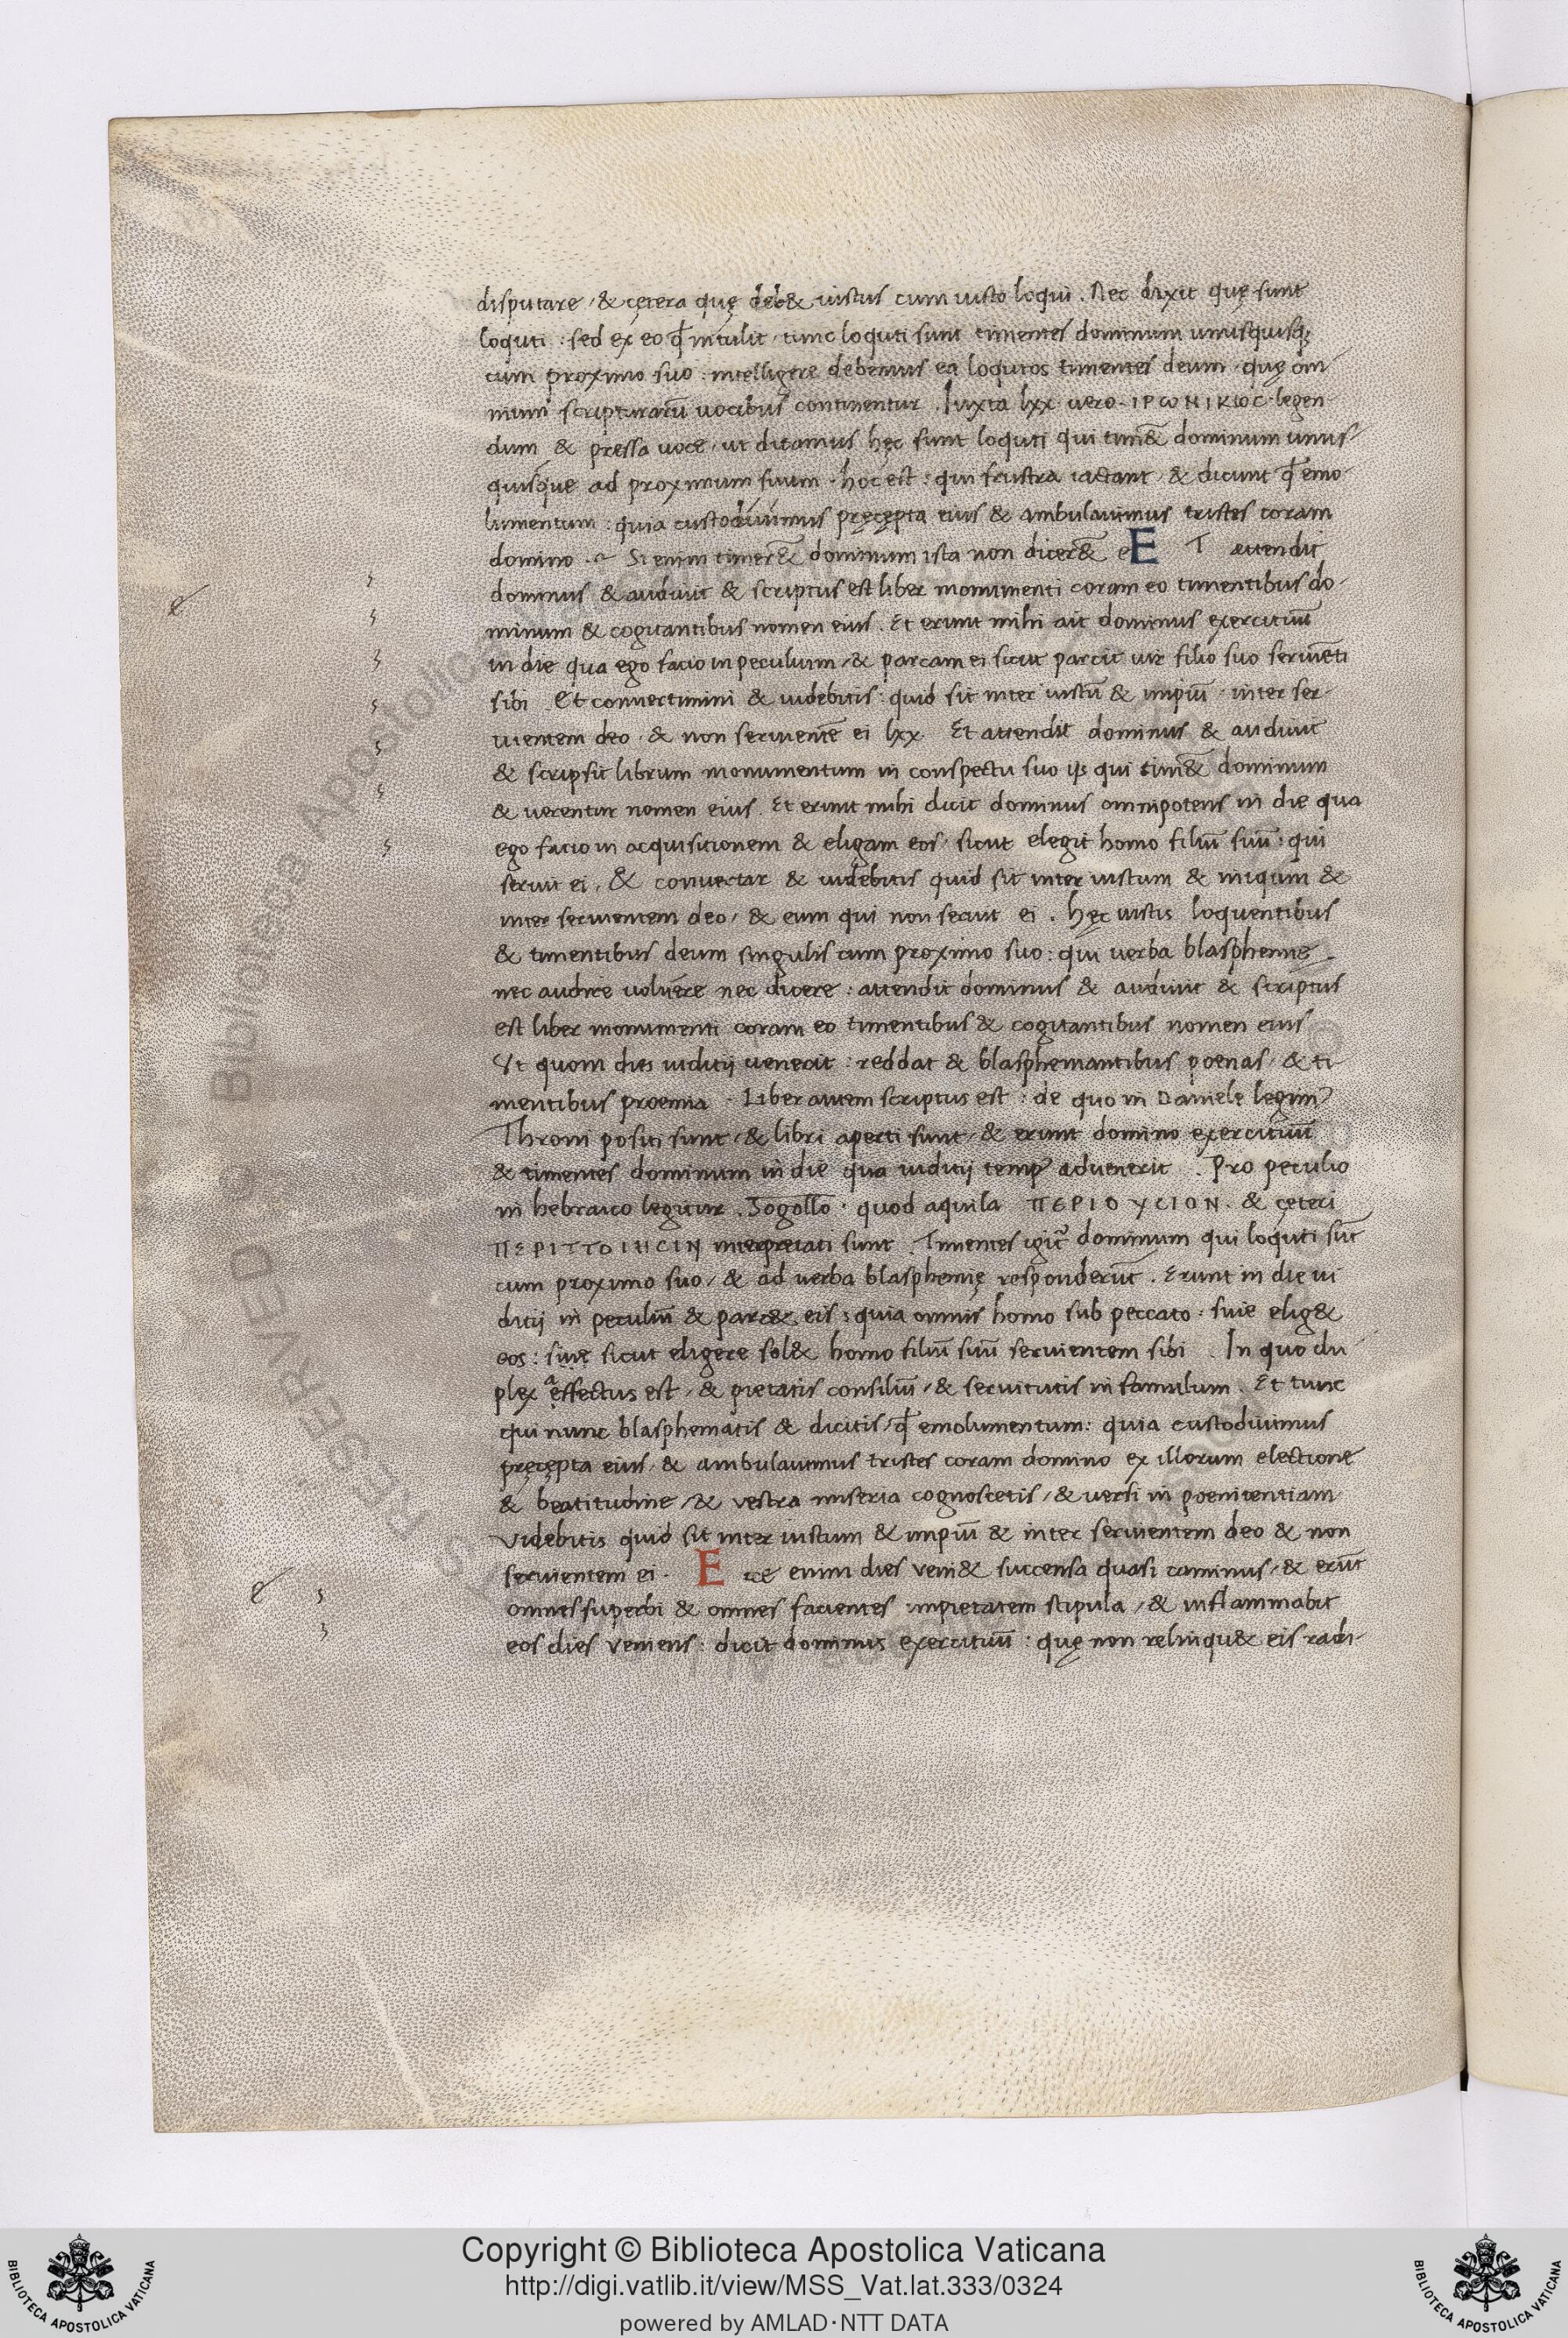 disputare / & cętera quę deb& iustus cum iusto loqui . Nec dixit quę sunt
loquti : sed ex eo qđ intulit / tunc loquti sunt timentes dominum unusquisq;
cum proximo suo : intelligere debemus ea loqutos timentes deum quę om̄
nium scripturarū uocibus continentur . Iuxta lxx uero · ΙΡѠΝΙΚѠС · legen
dum & pressa uoce / ut dicamus hęc sunt loquti qui tim&̄ dominum unus-
quisque ad proximum suum · hoc est : qui frustra iactant / & dicunt qđ emo
lumentum : quia custodiuimus pręcępta eius & ambulauimus tristes coram
domino . Si enim timer&̄ dominum ista non dicer&̄ e E T attendit
dominus & audiuit & scriptus est liber monumenti coram eo timentibus do-
minum & cogitantibus nomen eius . Et erunt mihi ait dominus exercituū
in die qua ego facio in peculium / & parcam ei sicut parcit uir filio suo seruiēti
sibi Et conuertimini & uidebitis : quid sit inter iustū & impiū · inter ser-
uientem deo · & non seruientē ei lxx Et attendit dominus & audiuit
& scripsit librum monumentum in conspectu suo ijs qui tim&̄ dominum
& uerentur nomen eius . Et erunt mihi dicit dominus omnipotens in die qua
ego facio in acquisitionem & eligam eos / sicut elegit homo filiū suū : qui
seruit ei . & conuertar & uidebitis quid sit inter iustum & iniqum &
inter seruientem deo / & eum qui non seruit ei . hęc iustis loquentibus
& timentibus deum singulis cum proximo suo : qui uerba blasphemię
nec audire uoluere nec dicere : attendit dominus & audiuit & scriptus
est liber monumenti coram eo timentibus & cogitantibus nomen eius
Ut quom dies iuditij uenerit : reddat & blasphemantibus poenas / & ti
mentibus proemia · Liber autem scriptus est : de quo in Danielę legim᷒
Throni positi sunt / & libri aperti sunt / & erunt domino exercituū
& timentes dominum in die qua iuditij temp᷒ aduenerit . Pro peculio
in hebraico legitur . Sogollo · quod aquila ΠЄΡΙΟΥСΙΟΝ . & cęteri
ΠЄΡΙΤΤΟΙΗСΙΝ interpretati sunt . Timentes igit᷑ dominum qui loquti sūt
cum proximo suo / & ad uerba blasphemię responderūt . Erunt in die iu
ditij in peculiū & parc&. eis : quia omnis homo sub peccato : siue elig&
eos : siuę sicut eligere sol& homo filiū suū seruientem sibi . In quo du
plex ªeffectus est / & pietatis consiliū / & seruitutis in famulum . Et tunc
qui nunc blasphematis & dicitis / qđ emolumentum : quia custodiuimus
pręcępta eius / & ambulauimus tristes coram domino ex illorum electione
& beatitudine / & vestra miseria cognoscetis / & uersi in poenitentiam
Videbitis quid sit inter iustum & impiū & inter seruientem deo & non
seruientem ei . E cce enim dies veni& succensa quasi caminus / & erūt
omnes superbi & omnes facientes impietatem stipula / & inflammabit
eos dies veniens : dicit dominus exercituū : quę non relinqu& eis radi-
Copyright © Biblioteca Apostolica Vaticana
http://digi.vatlib.it/view/MSS_Vat.lat.333/0324
powered by AMLAD·NTT DATA
BIBLIOTECA APOSTOLICA VATICANA
BIBLIOTECA APOSTOLICA VATICANA